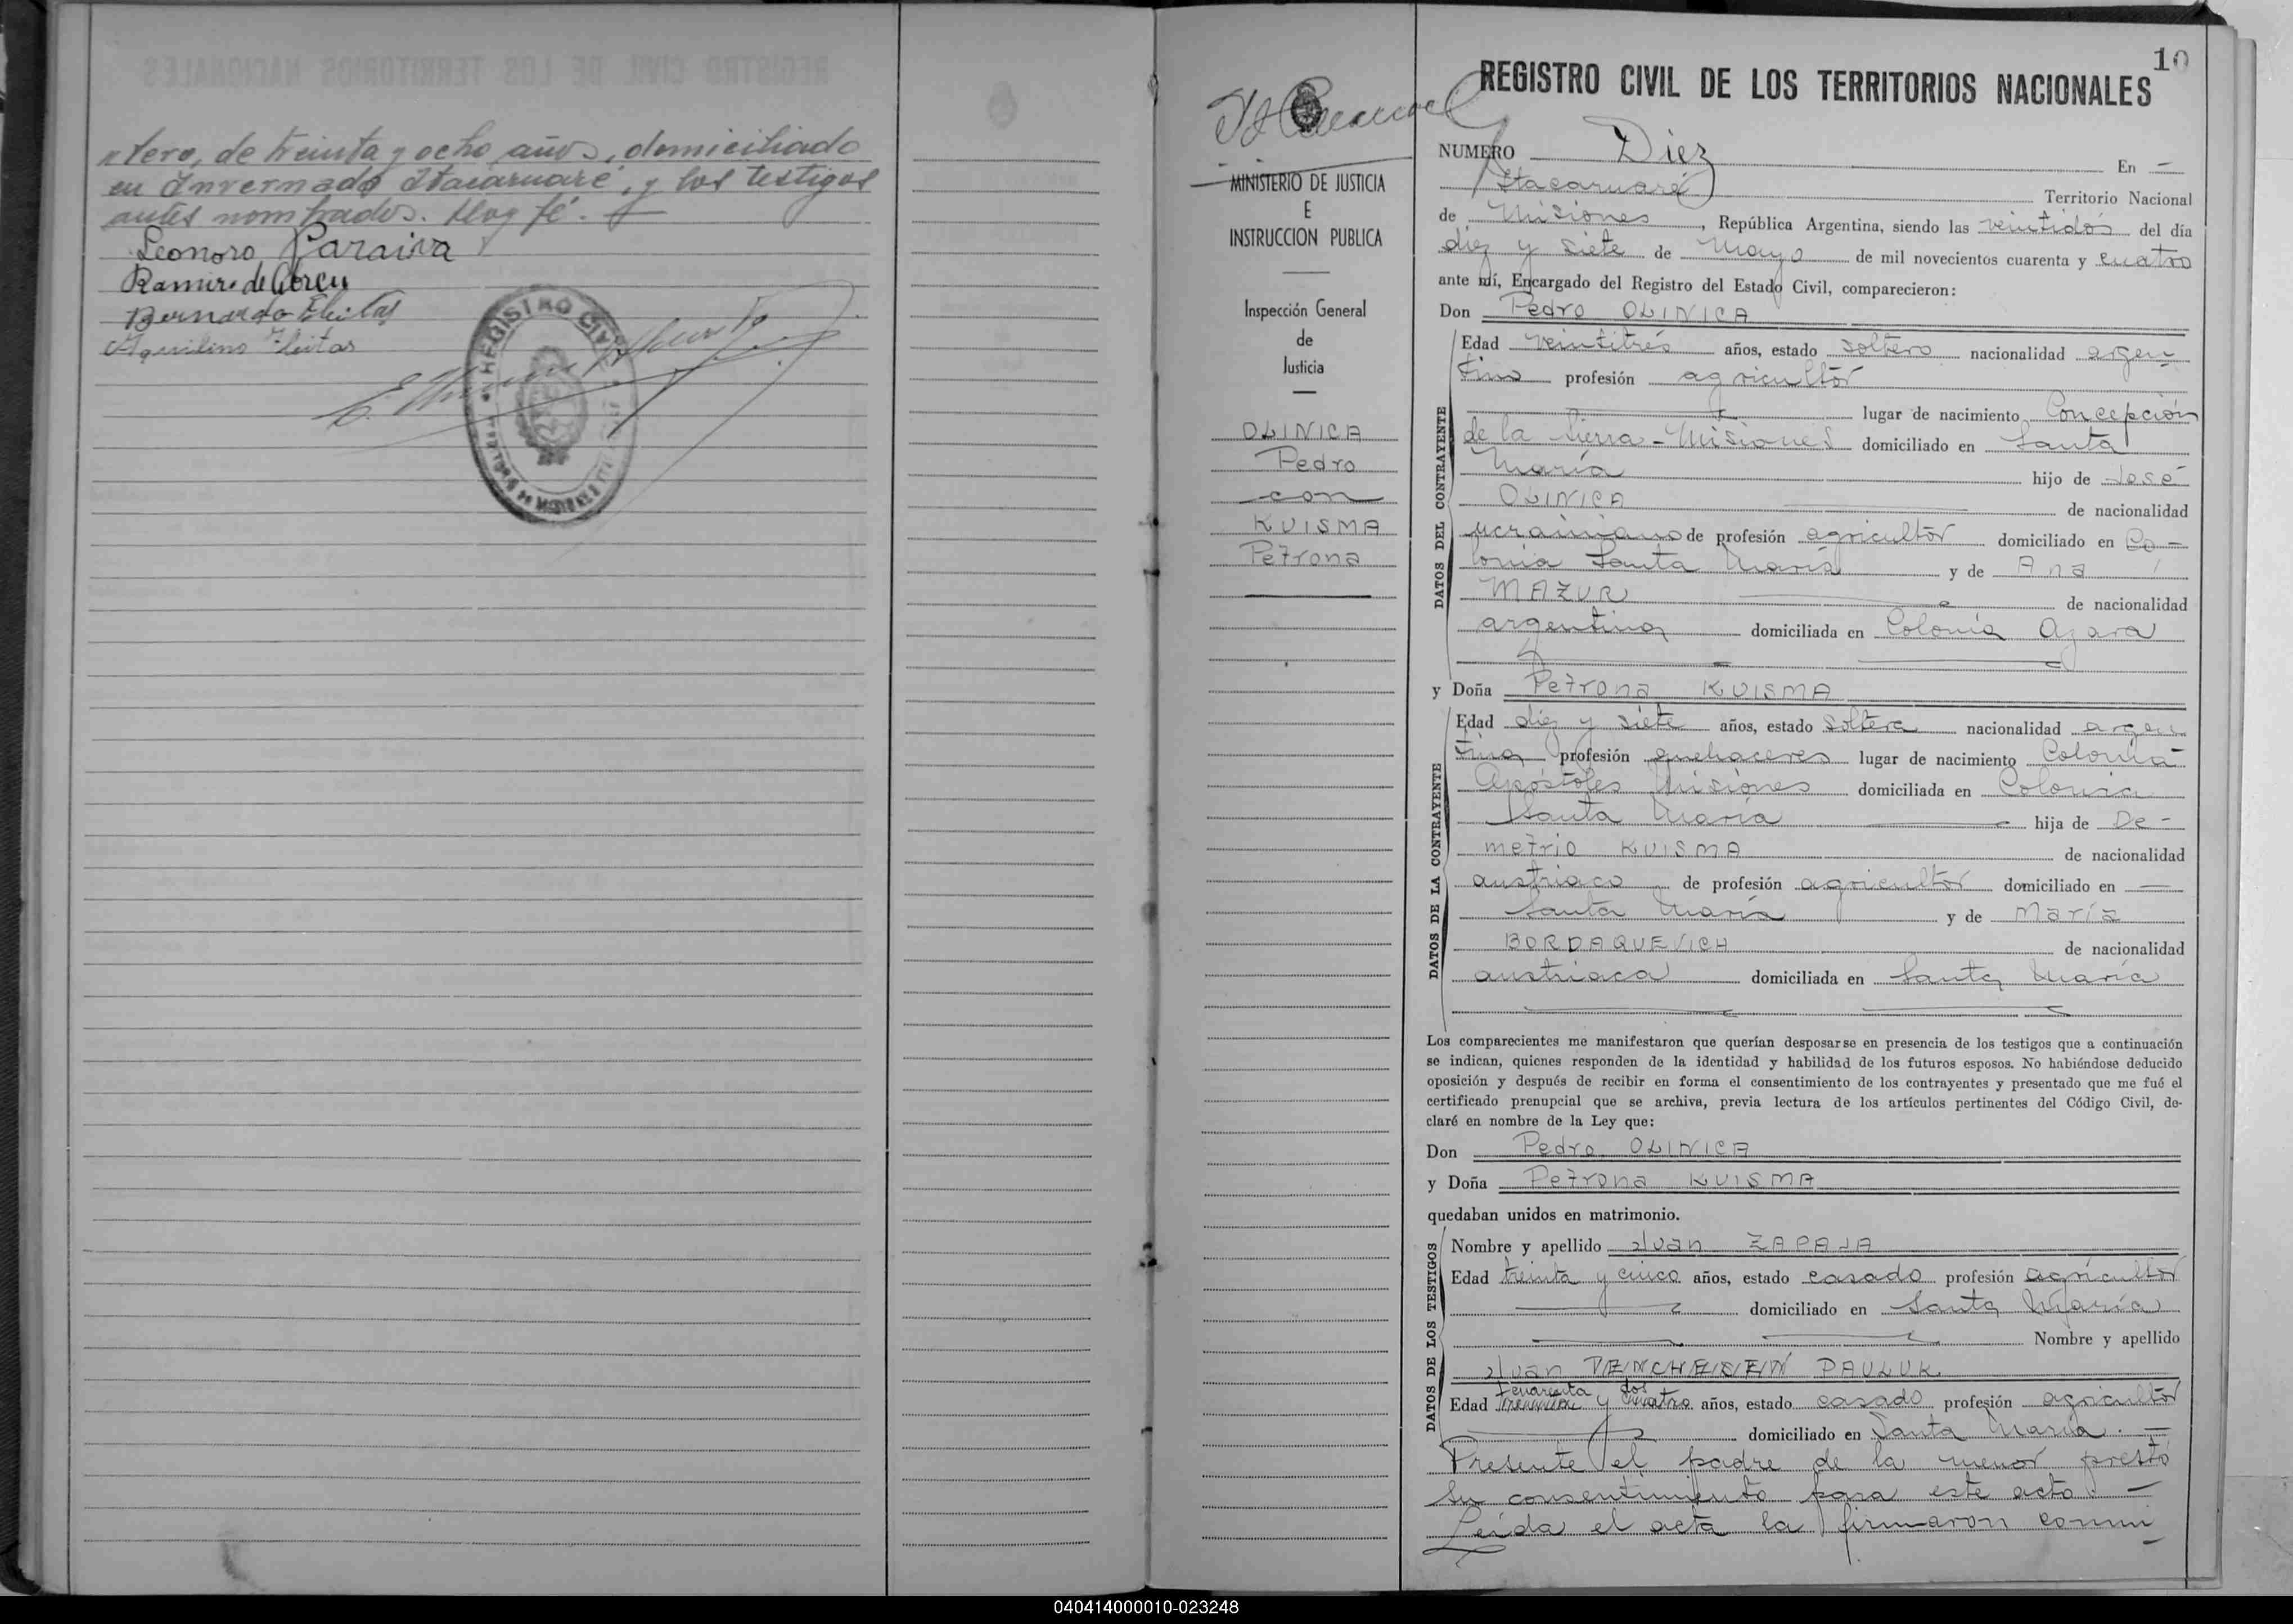 ntero, de treinta y ocho años, domiciliado
en Invernada Itacaruaré, y los testigos
antes nombrados. Doy fé.
Leonoro Paraiva
Ramiro de
Bernardo Fleitas
Aquilino Fleitas
REGISTRO CIVIL
10
REGISTRO CIVIL DE LOS TERRITORIOS NACIONALES
MINISTERIO DE JUSTICIA
E
INSTRUCCION PUBLICA
Inspección General
de
Justicia
OLINICA
Pedro
con
KUISMA
Petrona
NUMERO Diez En —
Itacaruaré Territorio Nacional
de Misiones, República Argentina, siendo las veintidós del día
diez y siete de Mayo de mil novecientos cuarenta y cuatro
ante mí, Encargado del Registro del Estado Civil, comparecieron:
Don Pedro OLINICA
DATOS DEL CONTRAYENTE
Edad veintitrés años, estado soltero nacionalidad argen-
tino profesión agricultor
lugar de nacimiento Concepción
de la Sierra - Misiones domiciliado en Santa
María hijo de José
OLINICA de nacionalidad
ucrainiano de profesión agricultor domiciliado en Co-
lonia Santa María y de Ana
MAZUR de nacionalidad
argentina domiciliada en Colonia Azara
y Doña Petrona KUISMA
DATOS DE LA CONTRAYENTE
Edad diez y siete años, estado soltera nacionalidad argen-
tina profesión quehaceres lugar de nacimiento Colonia
Apóstoles Misiones domiciliada en Colonia
Santa María hija de De-
metrio KUISMA de nacionalidad
austriaco de profesión agricultor domiciliado en —
Santa María y de María
BORDAQUEVICH de nacionalidad
austriaca domiciliada en Santa María
Los comparecientes me manifestaron que querían desposarse en presencia de los testigos que a continuación
se indican, quienes responden de la identidad y habilidad de los futuros esposos. No habiéndose deducido
oposición y después de recibir en forma el consentimiento de los contrayentes y presentado que me fué el
certificado prenupcial que se archiva, previa lectura de los artículos pertinentes del Código Civil, de-
claré en nombre de la Ley que:
Don Pedro OLINICA
y Doña Petrona KUISMA
quedaban unidos en matrimonio.
DATOS DE LOS TESTIGOS
Nombre y apellido Juan ZAPAJA
Edad treinta y cinco años, estado casado profesión agricultor
domiciliado en Santa María
Nombre y apellido
Juan PAULUK
cuarenta dos
Edad y cuatro años, estado casado profesión agricultor
domiciliado en Santa María. —
Presente el padre de la menor prestó
su consentimiento para este acto. —
Leída el acta la firmaron conmi
040414000010-023248